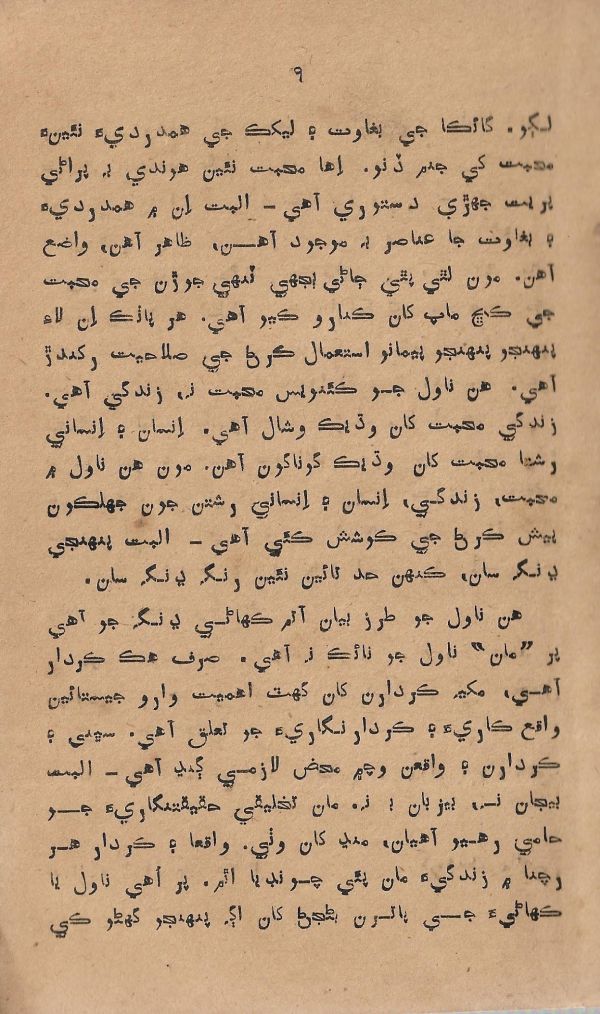 ۹
لڳو. گائڪا جي بغاوت ۽ ليکڪ جي همدرديءَ نئينءَ
محبت کي جنم ڏنو. اِها محبت نئين هوندي بہ پراڻي
پريت جهڙي دستوري آهي - البت اِن ۾ همدرديءَ
۽ بغاوت جا عناصر بہ موجود آهن، ظاهر آهن، واضع
آهن. مون لٿي پٿي ڄاڻي ٻجهي ٽنهي جوڙن جي محبت
جي ڪڇ ماپ کان ڪنارو ڪيو آهي. هر پاٺڪ اِن لاءِ
پنهنجو پنهنجو پيمانو استعمال ڪرڻ جي صلاحيت رکندڙ
آهي. هن ناول جو ڪئنويس محبت نہ، زندگي آهي.
زندگي محبت کان وڌيڪ وشال آهي. اِنسان ۽ اِنساني
رشتا محبت کان وڌيڪ گوناگون آهن. مون هن ناول ۾
محبت، زندگي، اِنسان ۽ اِنساني رشتن جون جهلڪون
پيش ڪرڻ جي ڪوشش ڪئي آهي - البت پنهنجي
ڍنگ سان، ڪنهن حد تائين نئين رنگ ڍنگ سان.
هن ناول جو طرز بيان آتم ڪهاڻي ڍنگ جو آهي
پر ”مان“ ناول جو نائڪ نہ آهي. صرف هڪ ڪردار
آهي، مکيہ ڪردارن کان گهٽ اهميت وارو جيستائين
واقع ڪاريءَ ۽ ڪردار نگاريءَ جو تعلق آهي. سڀني ۽
ڪردارن ۽ واقعن وچ ۾ محض لازمي ڳنڍ آهي - البت
بيجان نہ، بيزبان ۽ نہ. مان تخليقي حقيقتنگاريءَ جو
حامي رهيو آهيان، منڍ کان وٺي. واقعا ۽ ڪردار هر
رچنا ۾ زندگيءَ مان پئي چونڊيا اٿم. پر اُهي ناول يا
ڪهاڻيءَ جي پاترن بڻجڻ کان اڳ پنهنجو گهڻو کي